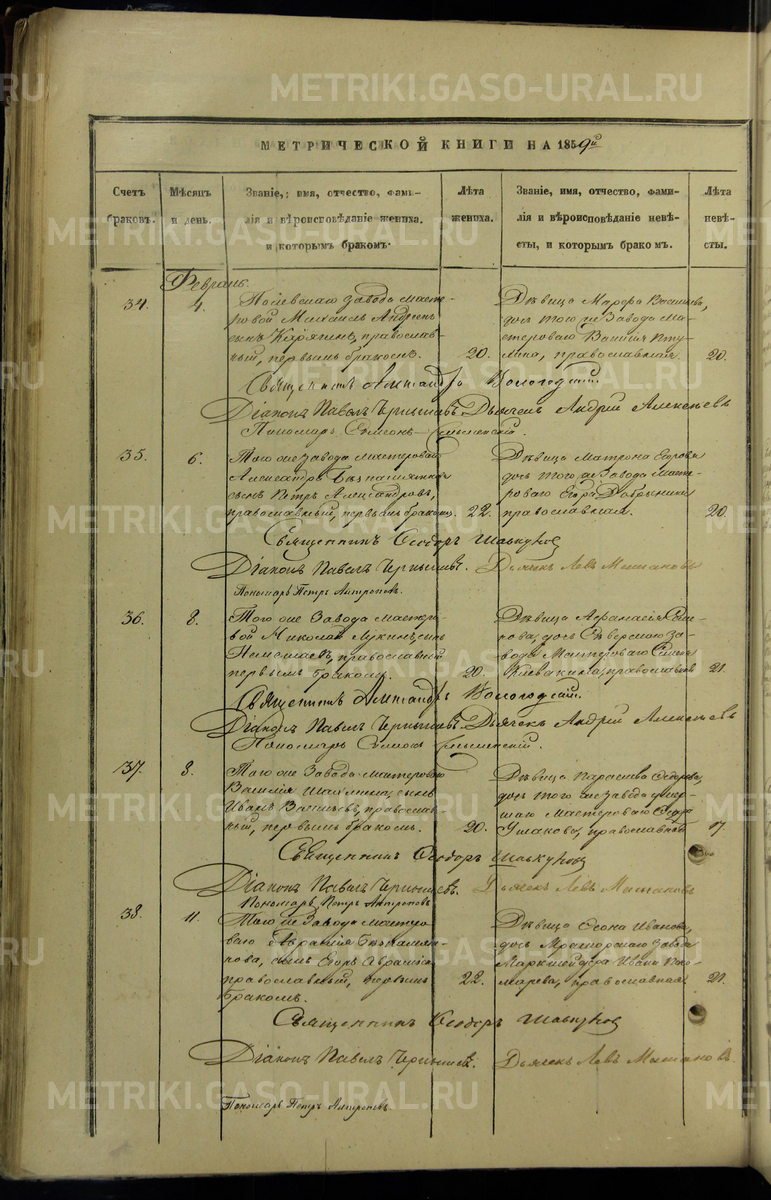 МЕТРИЧЕСКОЙ КНИГИ НА 1859й
Счетъ браковъ.
Мѣсяцъ и день.
Званіе, имя, отчество, фами-
лія и вѣроисповѣданіе жениха.
и которымъ бракомъ.
Лѣта жениха.
Званіе, имя, отчество, фами-
лія и вѣроисповѣданіе невѣ-
сты, и которымъ бракомъ.
Лѣта невѣ-
сты.
Февраль.
34.
4.
Полевскаго завода масте-
ровой Михаилъ Андреевъ
сынъ, православ-
ный, первымъ бракомъ.
20.
Дѣвица Марфа Васильева,
дочь того же Завода ма-
стероваго Василія
православная.
20.
Священникъ Александръ Вологодскій.
Діаконъ Павелъ Чернышевъ. Дьячекъ Андрей Алексѣевъ
Пономарь Симеонъ
35.
6.
Того же завода мастероваго
Александра
сынъ Петръ Александровъ,
православный, первымъ бракомъ.
22.
Дѣвица Матрона Егорова
дочь того же Завода масте-
роваго Егора Добрынина
православная.
20.
Священникъ Ѳеодоръ
Діаконъ Павелъ Чернышевъ. Дьячекъ Левъ
Пономарь Петръ Антроповъ.
36.
8.
Того же Завода мастеро-
вой Николай Лукинъ сынъ
православный
первымъ бракомъ.
20.
Дѣвица Афанасія Семе-
нова, дочь Сѣверскаго за-
вода Мастероваго
православная
21.
Священникъ Александръ Вологодскій.
Діаконъ Павелъ Чернышевъ. Дьячекъ Андрей Алексѣевъ
Пономарь Симеонъ
37.
8.
Того же Завода мастероваго
Василія сынъ
Иванъ Васильевъ, православ-
ный, первымъ бракомъ.
20.
Дѣвица Параскева Ѳедорова,
дочь того же завода умер-
шаго мастероваго Ѳедора
Ушакова, православная
17
Священникъ Ѳеодоръ
Діаконъ Павелъ Чернышевъ. Дьячекъ Левъ
Пономарь Петръ Антроповъ
38.
11.
Того же Завода мастеро-
ваго Авраамія
сынъ Егоръ
православный, первымъ
бракомъ.
22.
Дѣвица Ѳеона Иванова,
дочь Мраморскаго Завода
Ивана Поно-
марева, православная
21.
Священникъ Ѳеодоръ
Діаконъ Павелъ Чернышевъ. Дьячекъ Левъ
Пономарь Петръ Антроповъ.
METRIKI.GASO-URAL.RU